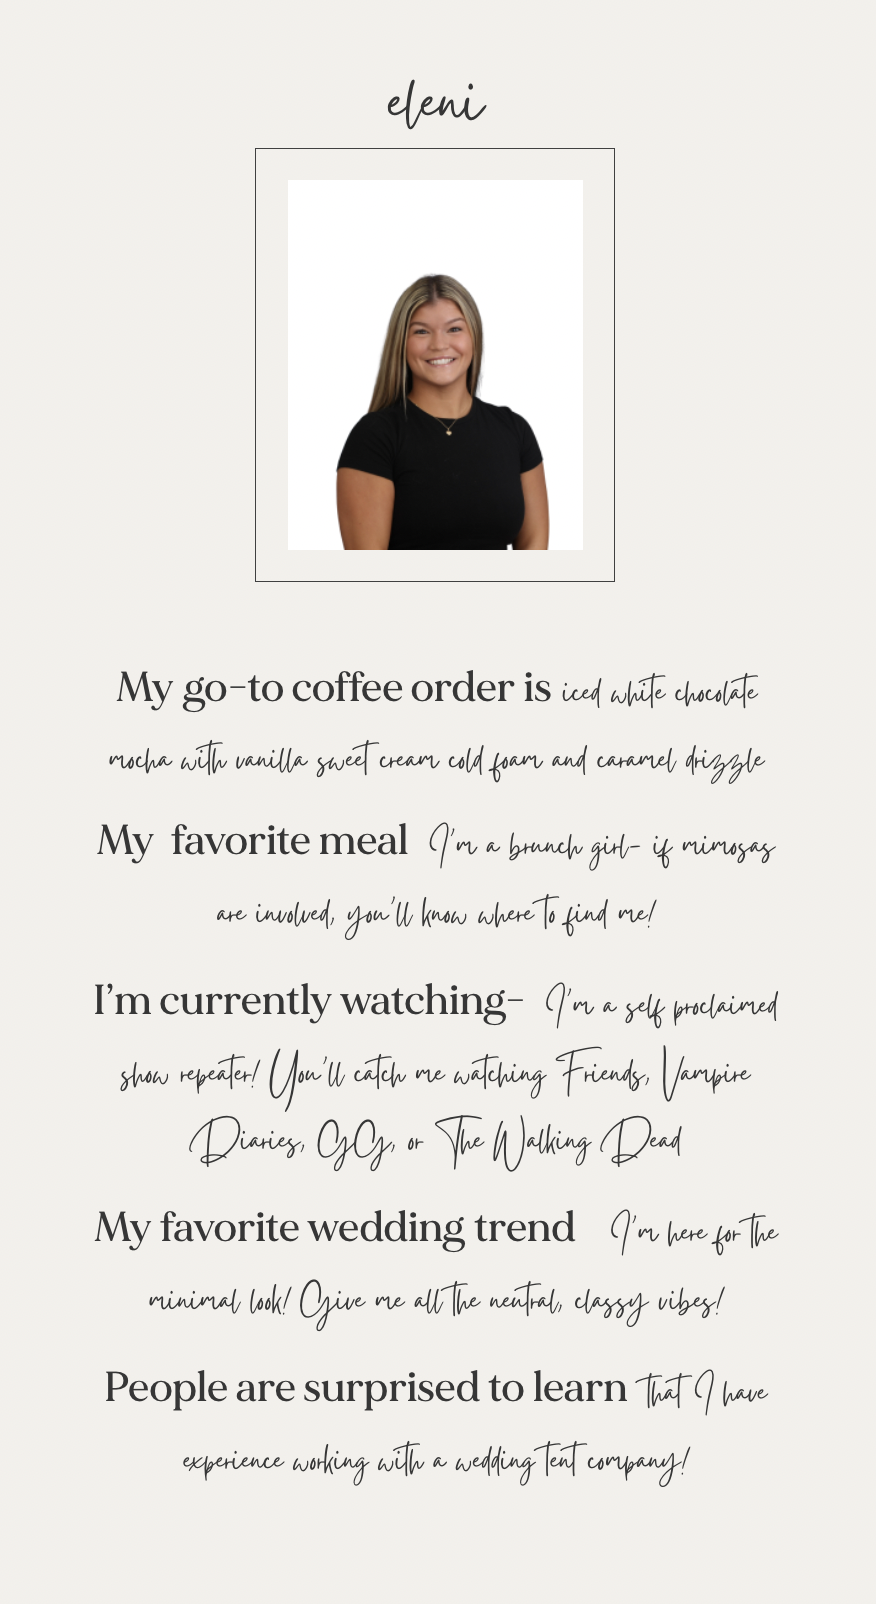 eleni
My go-to coffee order is iced white chocolate
mocha with vanilla sweet cream cold foam and caramel drizzle
My favorite meal I'm a brunch girl- if mimosas
are involved, you'll know where to find me!
I'm currently watching- I'm a self proclaimed
show repeater! You'll catch me watching Friends, Vampire
Diaries, GG, or The Walking Dead
My favorite wedding trend I'm here for the
minimal look! Give me all the neutral, classy vibes!
People are surprised to learn that I have
experience working with a wedding tent company!